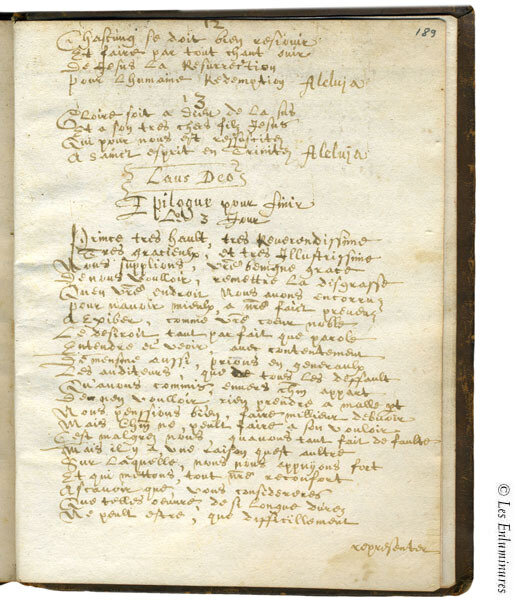 189
12
Chascung se doit bien resiouir
Et faire par tout chant ouir
De Jesus La Resurrection
pour Lhumaine Redemption Aleluja
13
Gloire soit a dieu de La sus
Et a son tres chers filz Jesus
Qui pour nous est ressuscite
A sainct esprit en Trinite Aleluja
Laus Deo
Epilogue pour finir
Le 3 Jour
Prince tres hault, tres Reverendissime
Tres gracieulx, et tres Illustrissime
Nous supplions, vre benigne grace
De nous voulloir, remettre La disgrasse
Quen vre endroit Nous avons encorru
pour navoir mieulx, nre faict
Exiber, comme vre coeur noble
Le desiroit tant par fait que parole
Entendre et veoir, avec contentement
De mensme aussi prions en general
Les auditeurs, que de tous les deffault
Quavons commis envers
De nen voulloir, rien prendre a malle
Nous penssions bien, faire millieur debvoir
Mais ne peult faire a son vouloir
Cest malgrez nous, quavons tant fait de faulte
Mais il y a une raison quest aultre
Sur Laquelle, nous nous appuyons fort
Et qui mettons, tout nre reconfort
Ascavoir que vous considereres
Que telles oeuvre, de si Longue durez
Ne peult estre, que difficillement
representer
© Les Enluminures